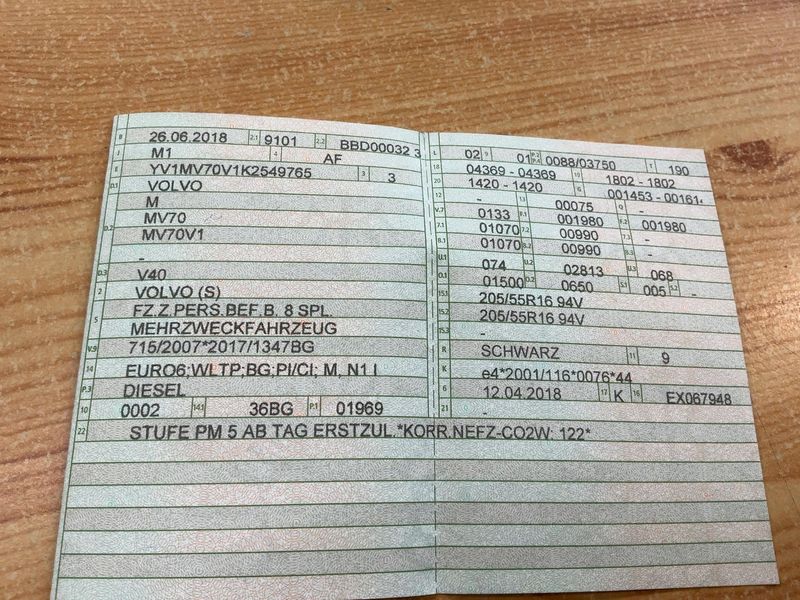 B 26.06.2018 2.1 9101 2.2 BBD00032 3
J M1 4 AF
E YV1MV70V1K2549765 3 3
D.1 VOLVO
M
D.2 MV70
MV70V1
-
D.3 V40
2 VOLVO (S)
5 FZ.Z.PERS.BEF.B. 8 SPL.
MEHRZWECKFAHRZEUG
V.9 715/2007*2017/1347BG
14 EURO6;WLTP;BG;PI/CI; M, N1 I
P.3 DIESEL
10 0002 14.1 36BG P.1 01969
22 STUFE PM 5 AB TAG ERSTZUL.*KORR.NEFZ-CO2W: 122*
L 02 9 01 P.2 P.4 0088/03750 T 190
18 04369 - 04369 19 1802 - 1802
20 1420 - 1420 G 001453 - 00161
12 - 13 00075 Q -
V.7 0133 F.1 001980 F.2 001980
7.1 01070 7.2 00990 7.3 -
8.1 01070 8.2 00990 8.3 -
U.1 074 U.2 02813 U.3 068
O.1 01500 O.2 0650 S.1 005 S.2 -
15.1 205/55R16 94V
15.2 205/55R16 94V
15.3 -
R SCHWARZ 11 9
K e4*2001/116*0076*44
6 12.04.2018 17 K 16 EX067948
21 -